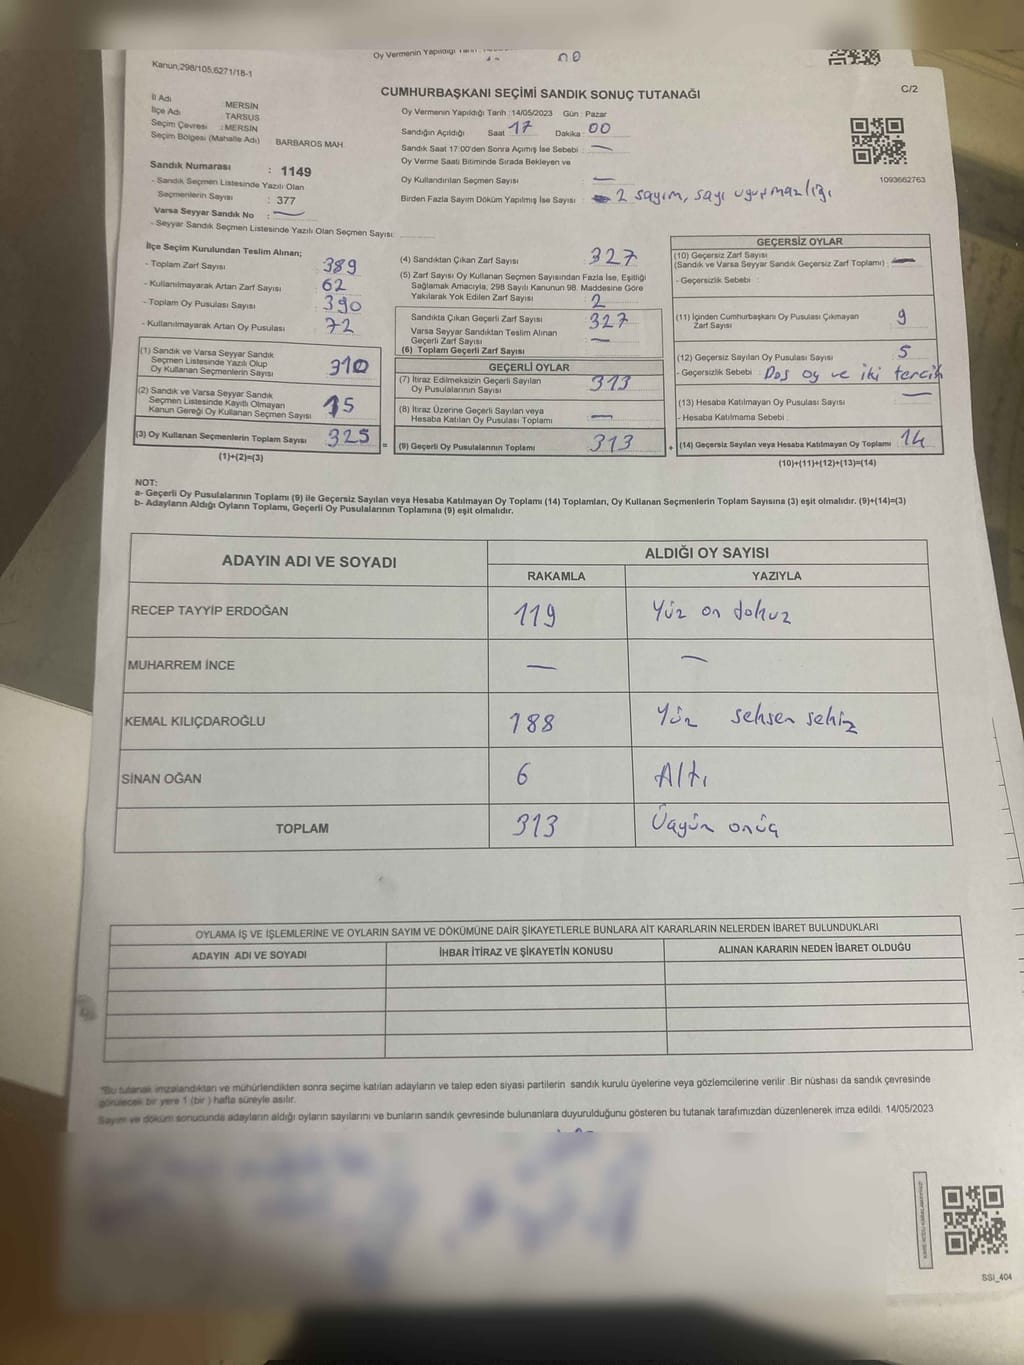 Kanun;298/105,6271/18-1
Oy Vermenin Yapıldığı
CUMHURBAŞKANI SEÇİMİ SANDIK SONUÇ TUTANAĞI
C/2
İl Adı MERSİN
İlçe Adı TARSUS
Seçim Çevresi : MERSİN
Seçim Bölgesi (Mahalle Adı) BARBAROS MAH.
Oy Vermenin Yapıldığı Tarih :14/05/2023 Gün : Pazar
Sandığın Açıldığı Saat 17 Dakika : 00
Sandık Saat 17:00'den Sonra Açımış İse Sebebi : —
Oy Verme Saati Bitiminde Sırada Bekleyen ve
Oy Kullandırılan Seçmen Sayısı —
Birden Fazla Sayım Döküm Yapılmış İse Sayısı : 2 sayım, sayı
1093662763
Sandık Numarası : 1149
- Sandık Seçmen Listesinde Yazılı Olan
Seçmenlerin Sayısı : 377
Varsa Seyyar Sandık No : —
- Seyyar Sandık Seçmen Listesinde Yazılı Olan Seçmen Sayısı:
İlçe Seçim Kurulundan Teslim Alınan;
- Toplam Zarf Sayısı 389
- Kullanılmayarak Artan Zarf Sayısı 62
- Toplam Oy Pusulası Sayısı 390
- Kullanılmayarak Artan Oy Pusulası 72
(1) Sandık ve Varsa Seyyar Sandık
Seçmen Listesinde Yazılı Olup
Oy Kullanan Seçmenlerin Sayısı 310
(2) Sandık ve Varsa Seyyar Sandık
Seçmen Listesinde Kayıtlı Olmayan
Kanun Gereği Oy Kullanan Seçmen Sayısı 15
(3) Oy Kullanan Seçmenlerin Toplam Sayısı 325
(1)+(2)=(3)
(4) Sandıktan Çıkan Zarf Sayısı 327
(5) Zarf Sayısı Oy Kullanan Seçmen Sayısından Fazla İse, Eşitliği
Sağlamak Amacıyla, 298 Sayılı Kanunun 98. Maddesine Göre
Yakılarak Yok Edilen Zarf Sayısı 2
Sandıkta Çıkan Geçerli Zarf Sayısı 327
Varsa Seyyar Sandıktan Teslim Alınan
Geçerli Zarf Sayısı —
(6) Toplam Geçerli Zarf Sayısı
GEÇERLİ OYLAR
(7) İtiraz Edilmeksizin Geçerli Sayılan
Oy Pusulalarının Sayısı 313
(8) İtiraz Üzerine Geçerli Sayılan veya
Hesaba Katılan Oy Pusulası Toplamı —
= (9) Geçerli Oy Pusulalarının Toplamı 313
GEÇERSİZ OYLAR
(10) Geçersiz Zarf Sayısı
(Sandık ve Varsa Seyyar Sandık Geçersiz Zarf Toplamı) : —
- Geçersizlik Sebebi :
(11) İçinden Cumhurbaşkanı Oy Pusulası Çıkmayan
Zarf Sayısı 9
(12) Geçersiz Sayılan Oy Pusulası Sayısı 5
- Geçersizlik Sebebi : Boş oy ve iki tercih
(13) Hesaba Katılmayan Oy Pusulası Sayısı —
- Hesaba Katılmama Sebebi :
+ (14) Geçersiz Sayılan veya Hesaba Katılmayan Oy Toplamı 14
(10)+(11)+(12)+(13)=(14)
NOT:
a- Geçerli Oy Pusulalarının Toplamı (9) ile Geçersiz Sayılan veya Hesaba Katılmayan Oy Toplamı (14) Toplamları, Oy Kullanan Seçmenlerin Toplam Sayısına (3) eşit olmalıdır. (9)+(14)=(3)
b- Adayların Aldığı Oyların Toplamı, Geçerli Oy Pusulalarının Toplamına (9) eşit olmalıdır.
ADAYIN ADI VE SOYADI ALDIĞI OY SAYISI
RAKAMLA YAZIYLA
RECEP TAYYİP ERDOĞAN 119 Yüz on dokuz
MUHARREM İNCE — —
KEMAL KILIÇDAROĞLU 188 Yüz seksen sekiz
SİNAN OĞAN 6 Altı
TOPLAM 313 Üçyüz onüç
OYLAMA İŞ VE İŞLEMLERİNE VE OYLARIN SAYIM VE DÖKÜMÜNE DAİR ŞİKAYETLERLE BUNLARA AİT KARARLARIN NELERDEN İBARET BULUNDUKLARI
ADAYIN ADI VE SOYADI İHBAR İTİRAZ VE ŞİKAYETİN KONUSU ALINAN KARARIN NEDEN İBARET OLDUĞU
*Bu tutanak imzalandıktan ve mühürlendikten sonra seçime katılan adayların ve talep eden siyasi partilerin sandık kurulu üyelerine veya gözlemcilerine verilir .Bir nüshası da sandık çevresinde
görülecek bir yere 1 (bir ) hafta süreyle asılır.
Sayım ve döküm sonucunda adayların aldığı oyların sayılarını ve bunların sandık çevresinde bulunanlara duyurulduğunu gösteren bu tutanak tarafımızdan düzenlenerek imza edildi. 14/05/2023
SSI_404